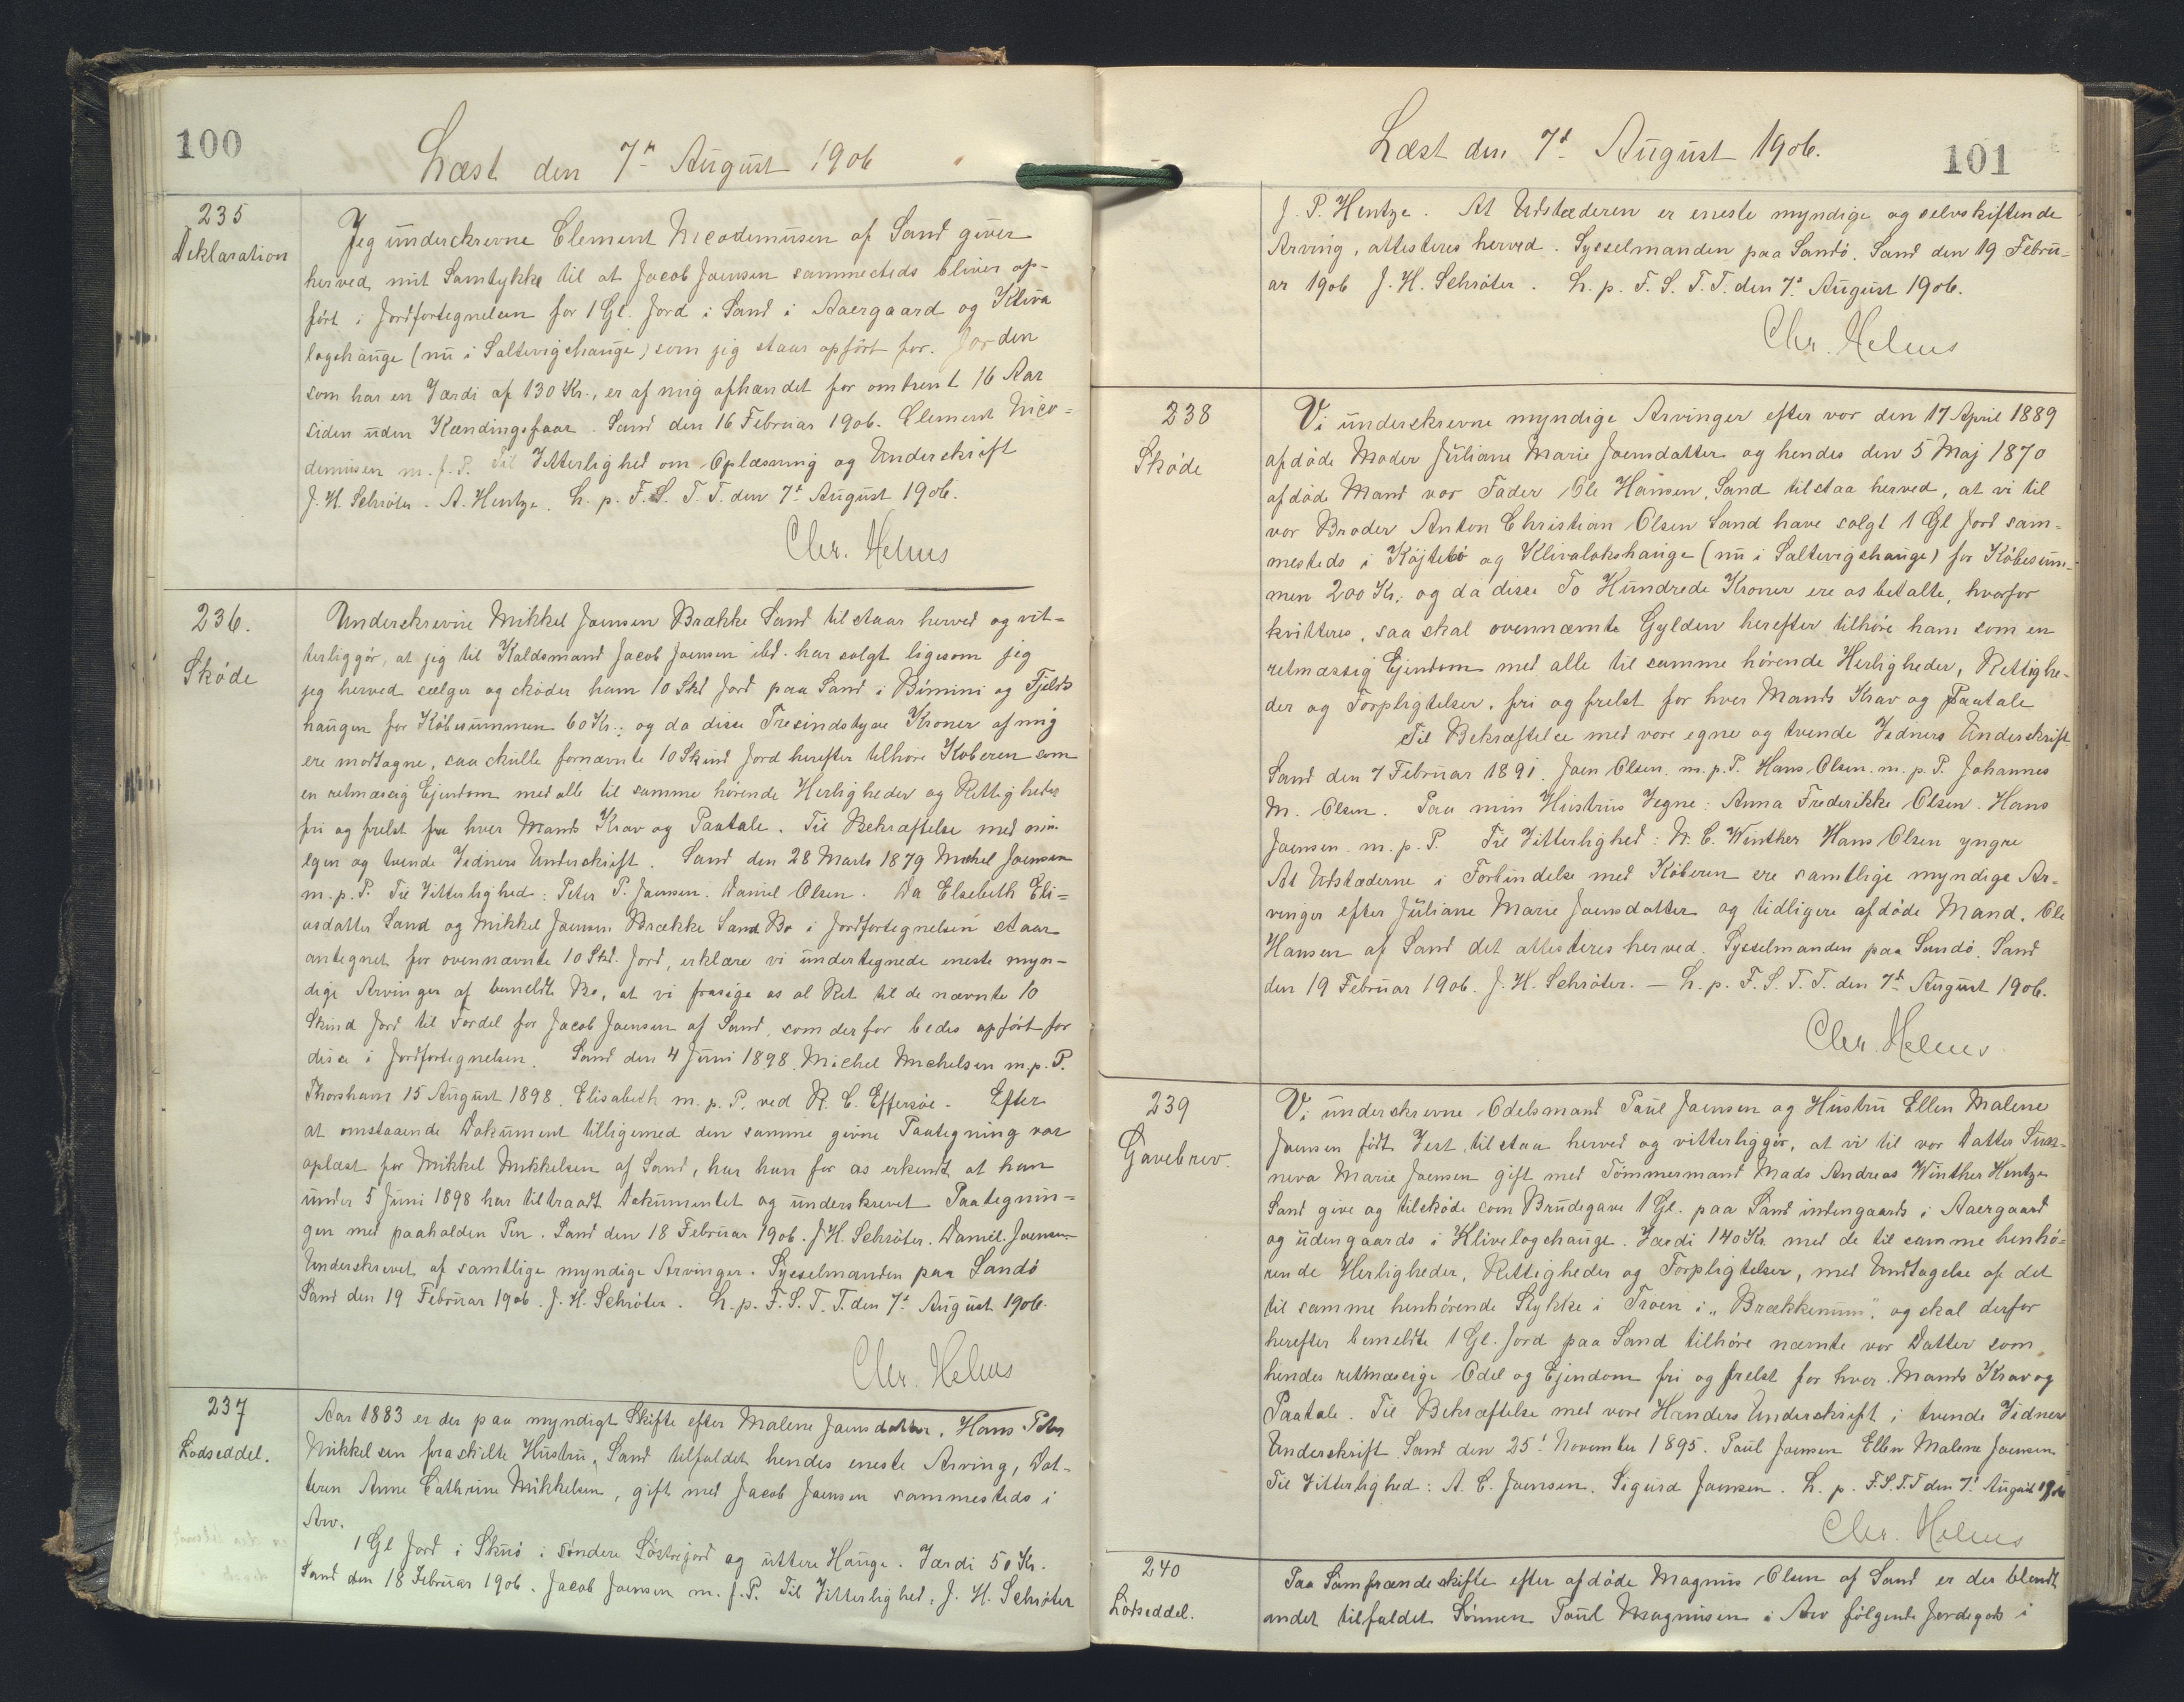 100
Læst den 7de August 1906
235
Deklaration
Jeg underskrevne Clement Nicodemusen af Sand giver
herved mit Samtykke til at Jacob Joensen sammesteds bliver op-
ført i Jordfortegnelsen for 1 Gl. Jord i Sand i Aaergaard og Kliva
logshauge (nu i Saltevigshauge) som jeg staar opført for. Jorden
som har en Værdi af 130 Kr., er af mig afhændet for omtrent 16 Aar
siden uden Kændingsfaar. Sand den 16 Februar 1906. Clement Nico=
demusen m. f. P. Til Vitterlighed om Oplæsning og Underskrift
J. H. Schröter. A. Hentze. L. p. F. S. T. T. den 7de August 1906.
Chr. Helms
236.
Skøde
Underskrevne Mikkel Joensen Brække Sand tilstaar herved og vit-
terliggør, at jeg til Kaldsmand Jacob Joensen ibd. har solgt ligesom jeg
jeg herved sælger og skøder ham 10 Skd Jord paa Sand i Bímini og Fjelds
haugen for Købesummen 60 Kr.; og da disse Tresindstyve Kroner af mig
ere modtagne, saa skulle fornævnte 10 Skind Jord herefter tilhøre Køberen som
en retmæssig Ejendom med alle til samme hørende Herligheder og Rettigheder
fri og frelst fra hver Mands Krav og Paatale. Til Bekræftelse med min
egen og tvende Vidners Underskrift. Sand den 28 Marts 1879 Michel Joensen
m. p. P. Til Vitterlighed: Peter P. Joensen. Daniel Olsen. Da Elsebeth Eli=
asdatter Sand og Mikkel Joensen Brække Sand Bo i Jordfortegnelsen staar
antegnet for ovennævnte 10 Skd. Jord, erklære vi undertegnede eneste myn-
dige Arvinger af bemeldte Bo, at vi frasige os al Ret til de nævnte 10
Skind Jord til Fordel for Jacob Joensen af Sand, som derfor bedes opført for
disse i Jordfortegnelsen. Sand den 4 Juni 1898. Michel Michelsen m. p. P.
Thorshavn 15 August 1898. Elisabeth m. p. P. ved R. C. Effersøe. Efter
at omstaaende Dokument tilligemed den samme givne Paategning var
oplæst for Mikkel Mikkelsen af Sand, har han for os erkendt, at han
under 5 Juni 1898 har tiltraadt Dokumentet og underskrevet Paategnin=
gen med paaholden Pen. Sand den 18 Februar 1906. J. H. Schröter. Daniel Joensen
Underskrevet af samtlige myndige Arvinger. Sysselmanden paa Sandø
Sand den 19 Februar 1906. J. H. Schröter. L. p. F. S. T. T. den 7de August 1906.
Chr. Helms
237
Lodseddel.
Aar 1883 er der paa myndigt Skifte efter Malene Joensdatter, Hans Peter
Mikkelsen fraskilte Hustru, Sand tilfaldet hendes eneste Arving, Dat-
teren Anne Cathrine Mikkelsen, gift med Jacob Joensen sammesteds i
Arv.
1 Gl Jord i Skuø i søndere Søstrejord og uttere Hauge. Værdi 50 Kr.
Sand den 18 Februar 1906. Jacob Joensen m. f. P. Til Vitterlighed: J. H. Schröter
Læst den 7de August 1906.
101
J. P. Hentze. At Udstæderen er eneste myndige og selvskiftende
Arving, attesteres herved. Sysselmanden paa Sandø. Sand den 19 Febru-
ar 1906 J. H. Schröter. L. p. F. S. T. T. den 7de August 1906.
Chr. Helms
238
Skøde
Vi underskrevne myndige Arvinger efter vor den 17 April 1889
afdøde Moder Juliane Marie Joensdatter og hendes den 5 Maj 1870
afdøde Mand vor Fader Ole Hansen, Sand tilstaa herved, at vi til
vor Broder Anton Christian Olsen Sand have solgt 1 Gl Jord sam=
mesteds i Køjtebø og Klivalokshauge (nu i Saltevigshauge) for Købesum-
men 200 Kr.; og da disse To Hundrede Kroner ere os betalte, hvorfor
kvitteres, saa skal ovennævnte Gylden herefter tilhøre ham som en
retmæssig Ejendom med alle til samme hørende Herligheder, Rettighe-
der og Forpligtelser, fri og frelst for hver Mands Krav og Paatale
Til Bekræftelse med vore egne og tvende Vidners Underskrift
Sand den 7 Februar 1891. Joen Olsen. m. p. P. Hans Olsen. m. p. P. Johannes
M. Olsen. Paa min Hustrus Vegne: Anna Frederikke Olsen. Hans
Joensen. m. p. P. Til Vitterlighed: W. C. Winther Hans Olsen yngre
At Udstæderne i Forbindelse med Køberen ere samtlige myndige Ar-
vinger efter Juliane Marie Joensdatter og tidligere afdøde Mand, Ole
Hansen af Sand det attesteres herved. Sysselmanden paa Sandø. Sand
den 19 Februar 1906. J. H. Schröter. — L. p. F. S. T. T. den 7de August 1906.
Chr. Helms
239
Gavebrev.
Vi underskrevne Odelsmand Paul Joensen og Hustru Ellen Malene
Joensen født Vest, tilstaa herved og vitterliggør, at vi til vor Datter
Marie Joensen gift med Tømmermand Mads Andreas Winther Hentze
Sand give og tilskøde som Brudegave 1 Gl. paa Sand indengaards i Aaergaard
og udengaards i Klivelogshauge. Værdi 140 Kr. med de til samme henhø-
rende Herligheder, Rettigheder og Forpligtelser, med Undtagelse af det
til samme henhørende Stykke i Troen i „Brækkenum", og skal derfor
herefter bemeldte 1 Gl. Jord paa Sand tilhøre nævnte vor Datter som
hendes retmæssige Odel og Ejendom fri og frelst for hver Mands Krav og
Paatale. Til Bekræftelse med vore Hænders Underskrift i tvende Vidners
Underskrift. Sand den 25de November 1895. Paul Joensen Ellen Malene Joensen
Til Vitterlighed: A. C. Joensen. Sigurd Joensen. L. p. F. S. T. T den 7de August 1906
Chr. Helms
240
Lodseddel.
Paa Samfrændeskifte efter afdøde Magnus Olsen af Sand er der blandt
andet tilfaldet Sønnen Poul Magnusen i Arv følgende Jordegods i